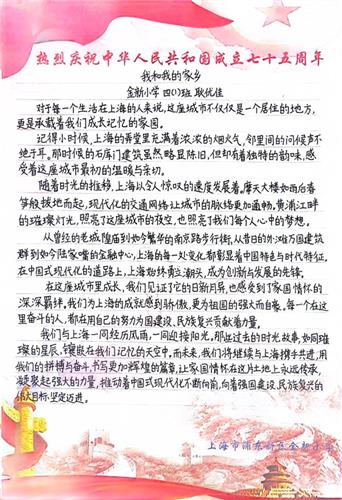 热烈庆祝中华人民共和国成立七十五周年
我和我的家乡
金新小学 四(1)班 耿优佳
对于每一个生活在上海的人来说,这座城市不仅仅是一个居住的地方,
更是承载着我们成长记忆的家园。
记得小时候,上海的弄堂里充满着浓浓的烟火气,邻里间的问候声不
绝于耳。那时候的石库门建筑虽然略显陈旧,但却有着独特的韵味,感
受着这座城市最初的温暖与亲切。
随着时光的推移,上海以令人惊叹的速度发展着。摩天大楼如雨后春
笋般拔地而起,现代化的交通网络让城市的脉络更加通畅。黄浦江畔
的璀璨灯光,照亮了这座城市的夜空,也照亮了我们每个人心中的梦想。
从曾经的老城隍庙到如今繁华的南京路步行街,从昔日的外滩万国建筑
群到如今陆家嘴的金融中心,上海的每一处变化都彰显着中国特色与时代特征。
在中国式现代化的道路上,上海始终勇立潮头,成为创新与发展的先锋。
在这座城市里成长,我们见证了它的日新月异,也感受到了家国情怀的
深深羁绊。我们为上海的成就感到骄傲,更为祖国的强大而自豪。每一个在这
里奋斗的人,都在用自己的努力为国建设、民族复兴贡献着力量。
我们与上海一同经历风雨,一同迎接阳光。那些过去的时光故事,如同璀
璨的星辰,镶嵌在我们记忆的天空中。而未来,我们将继续与上海携手共进,用
我们的拼搏与奋斗,书写更加辉煌的篇章,让家国情怀在这片土地上永远传承,
凝聚起强大的力量,推动着中国式现代化不断向前,向着强国建设、民族复兴的
伟大目标,坚定迈进。
上海市浦东新区金新小学